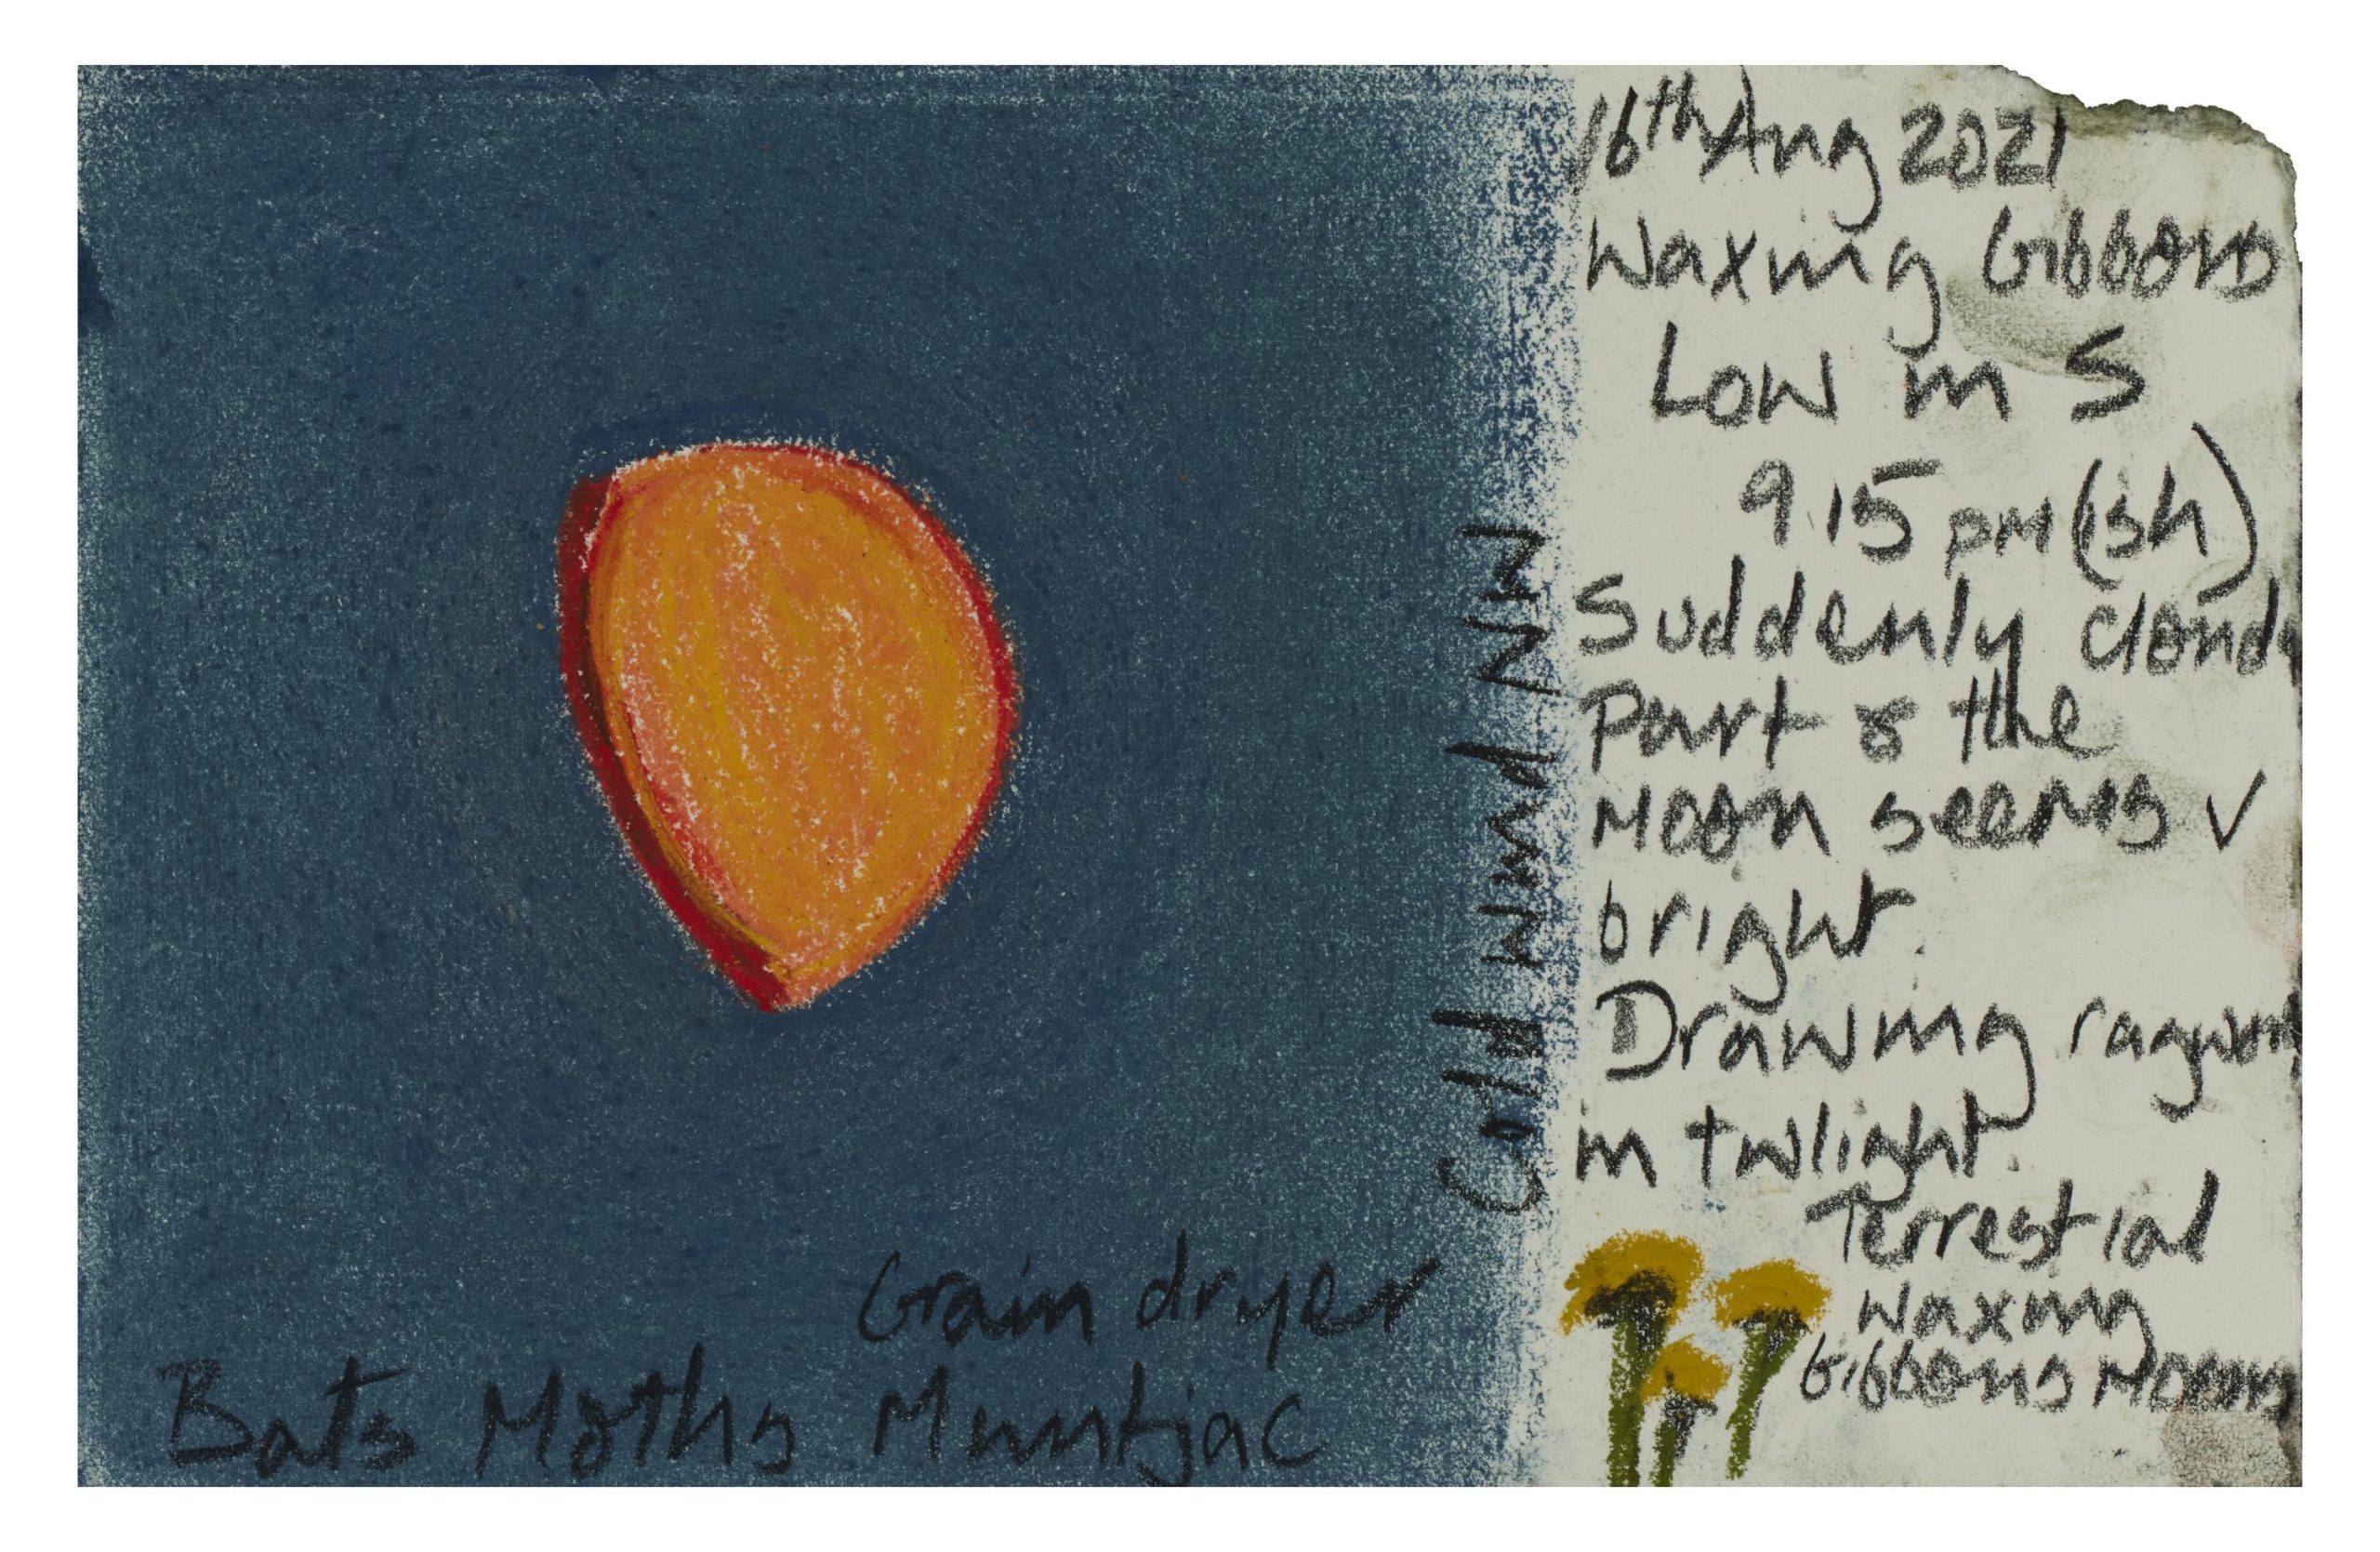 16th Aug 2021
Waxing Gibbous
Low in S
9 15 pm (ish)
Suddenly cloudy
Part the
Moon seems v
bright.
Drawing ragwort
in twlight.
Terrestial
Waxing
Gibbous Moons
Cold wind NW
Grain dryer
Bats Moths Muntjac